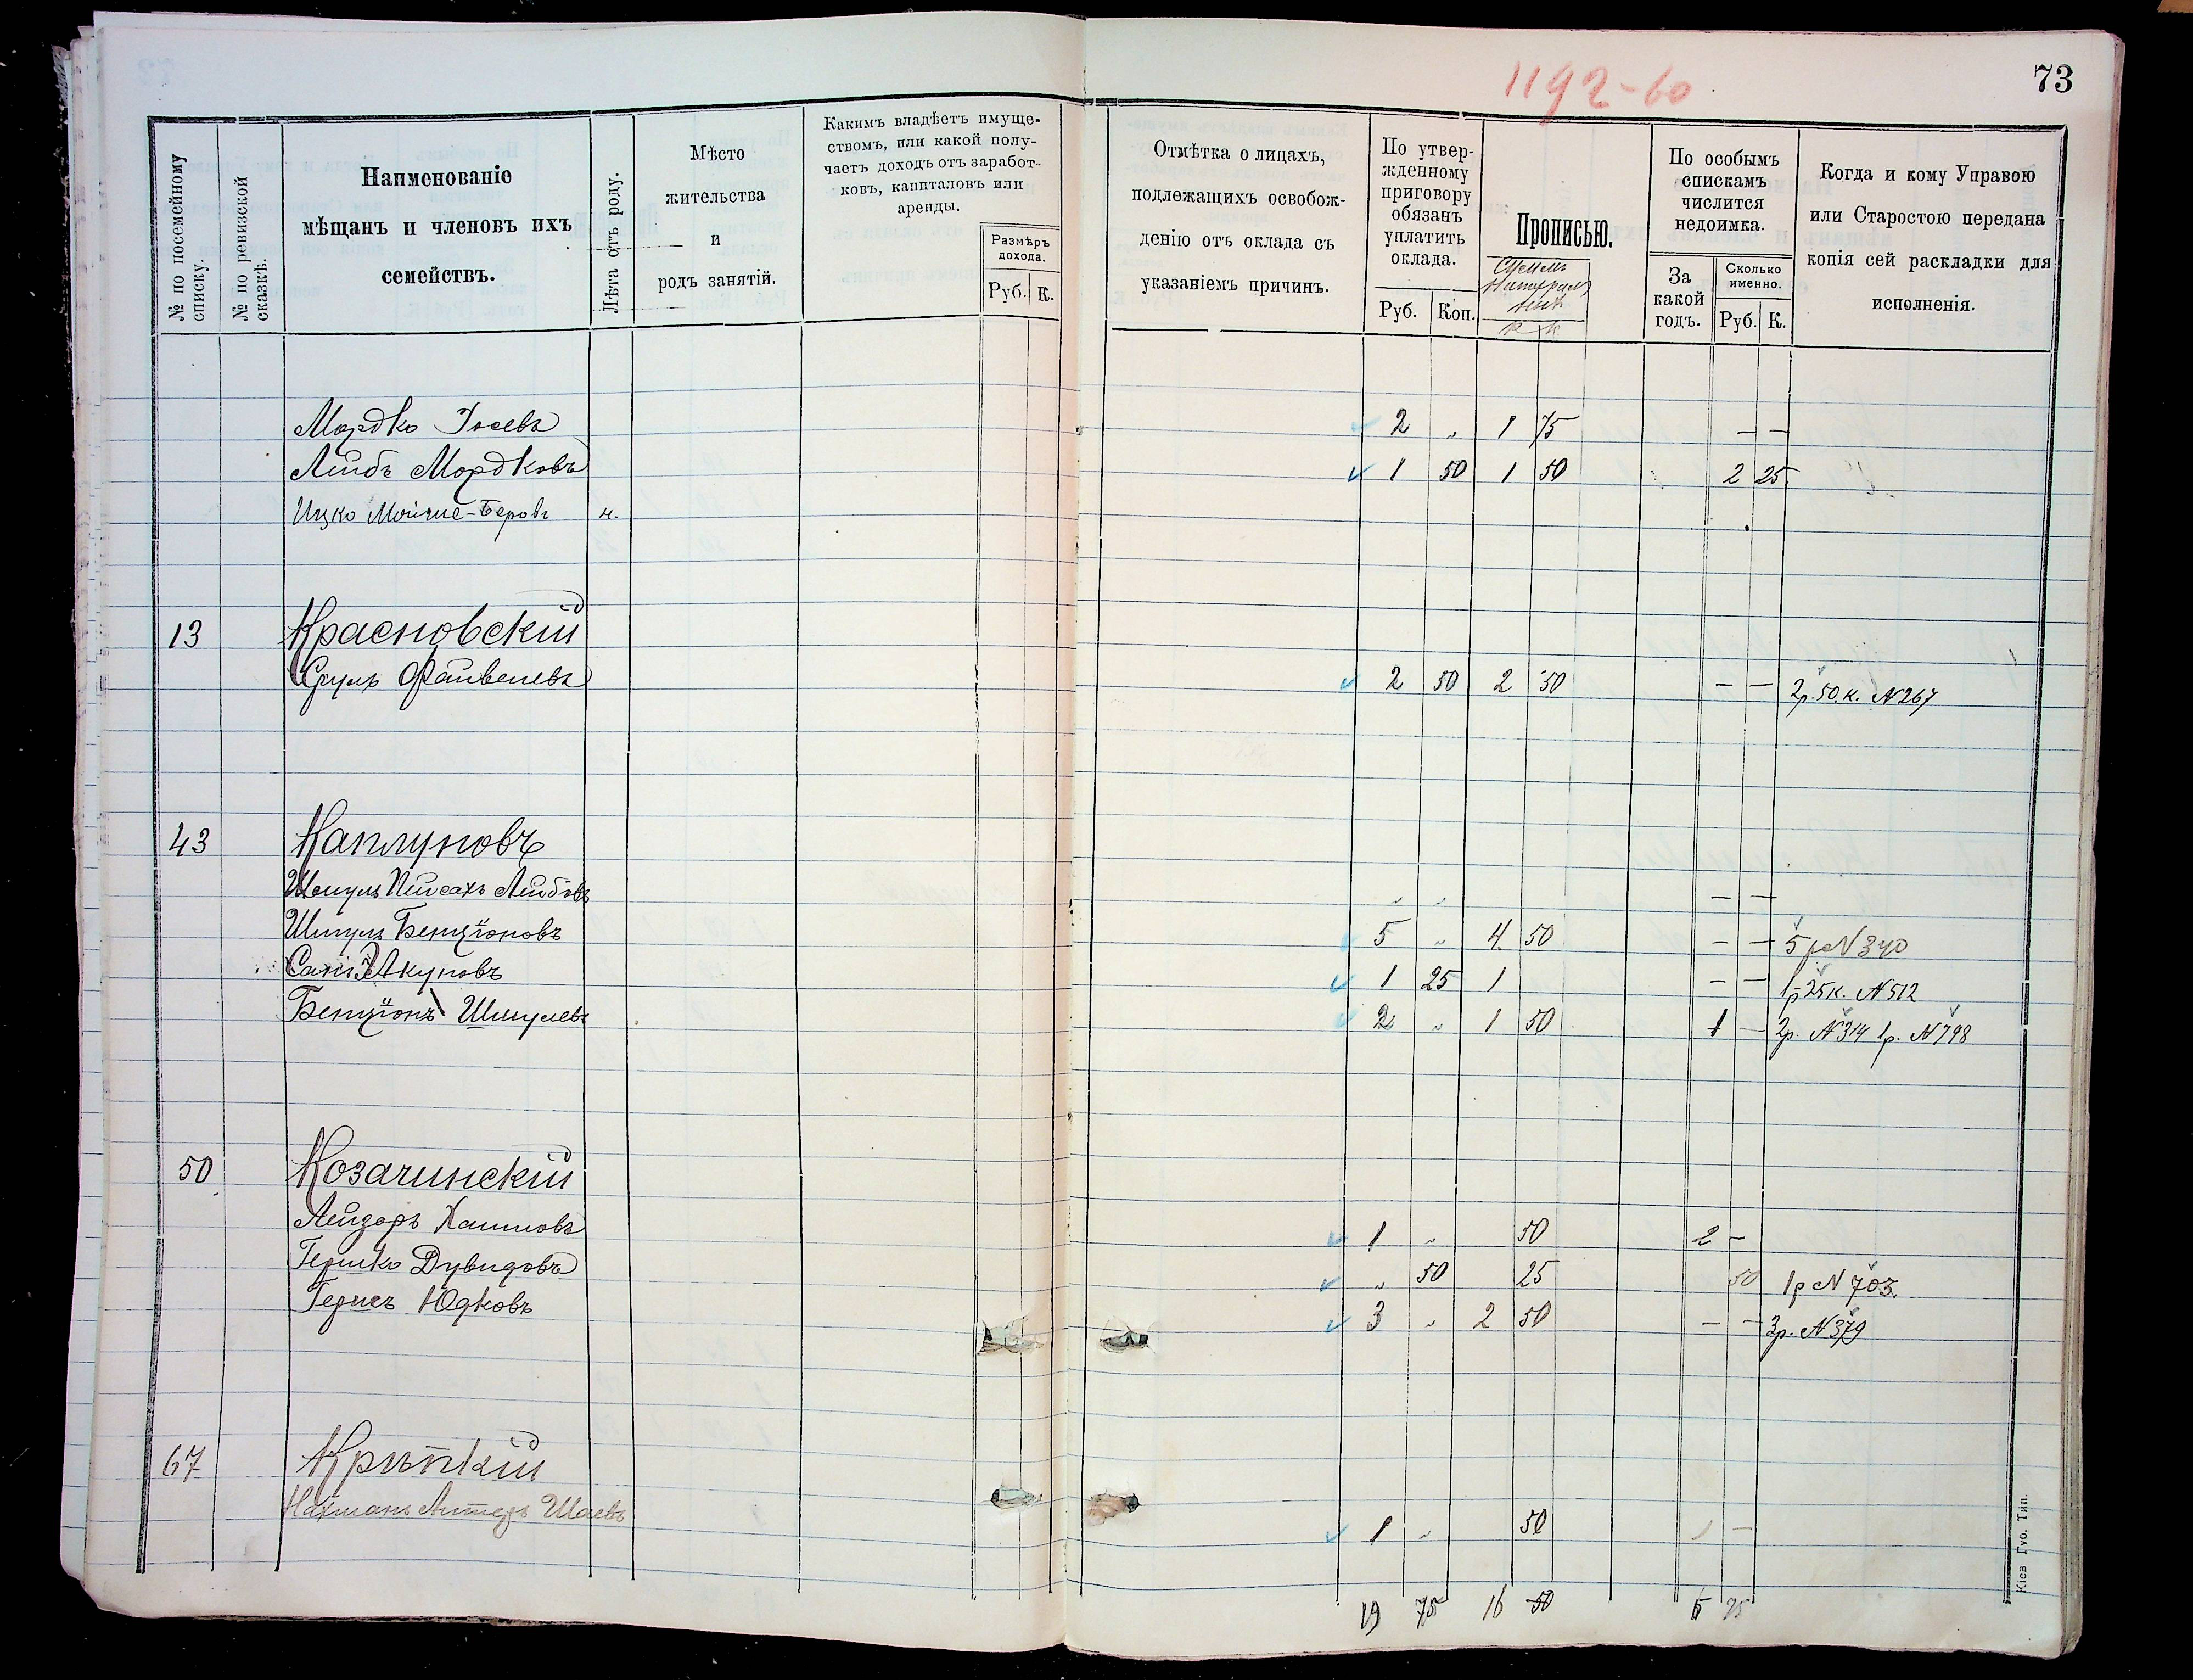 1192-60
73
№ по посемейному списку.
№ по ревизской сказкѣ.
Наименованіе мѣщанъ и членовъ ихъ семействъ.
Лѣта отъ роду.
Мѣсто жительства и родъ занятій.
Какимъ владѣетъ имуще-
ствомъ, или какой полу-
чаетъ доходъ отъ заработ-
ковъ, капиталовъ или
аренды.
Размѣръ дохода.
Руб. К.
Отмѣтка о лицахъ,
подлежащихъ освобож-
денію отъ оклада съ
указаніемъ причинъ.
По утвер-
жденному
приговору
обязанъ
уплатить
оклада.
Руб. Коп.
Прописью.
По особымъ
спискамъ
числится
недоимка.
За какой годъ.
Сколько именно.
Руб. К.
Когда и кому Управою
или Старостою передана
копія сей раскладки для
исполненія.
Мордко Іосевъ 2 „ 1 75 — —
Лейбъ Мордковъ 1 50 1 50 2 25
Ицко Мойше-Беровъ н.
13 Красновскій
Сруль Файвелевъ 2 50 2 50 — — 2р. 50.к. №267
43 Каплуновъ
Шмуль Пейсахъ Лейбовъ „ „ — —
Шмуль Бенціоновъ 5 „ 4 50 — — 5р №340
Янкуповъ 1 25 1 — — 1р 25к. №512
Бенціонъ Шмулевъ 2 „ 1 50 1 — 2р. №314 1р. №798
50 Козачинскій
Лейзоръ Хаимовъ 1 „ 50 2 —
Гершко Дувидовъ „ 50 25 50 1р №703.
Гершъ Юдковъ 3 „ 2 50 — — 3р. №379
67 Крѣпкій
Нахманъ Альтеръ Шаевъ 1 „ 50 1 —
19 75 16 50 5 75
Кіев Губ. Тип.